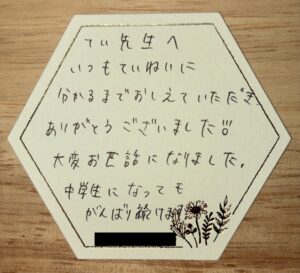 てぃ先生へ
いつもていねいに
分かるまでおしえていただき、
ありがとうございました!!
大変お世話になりました。
中学生になっても
がんばり続けます!